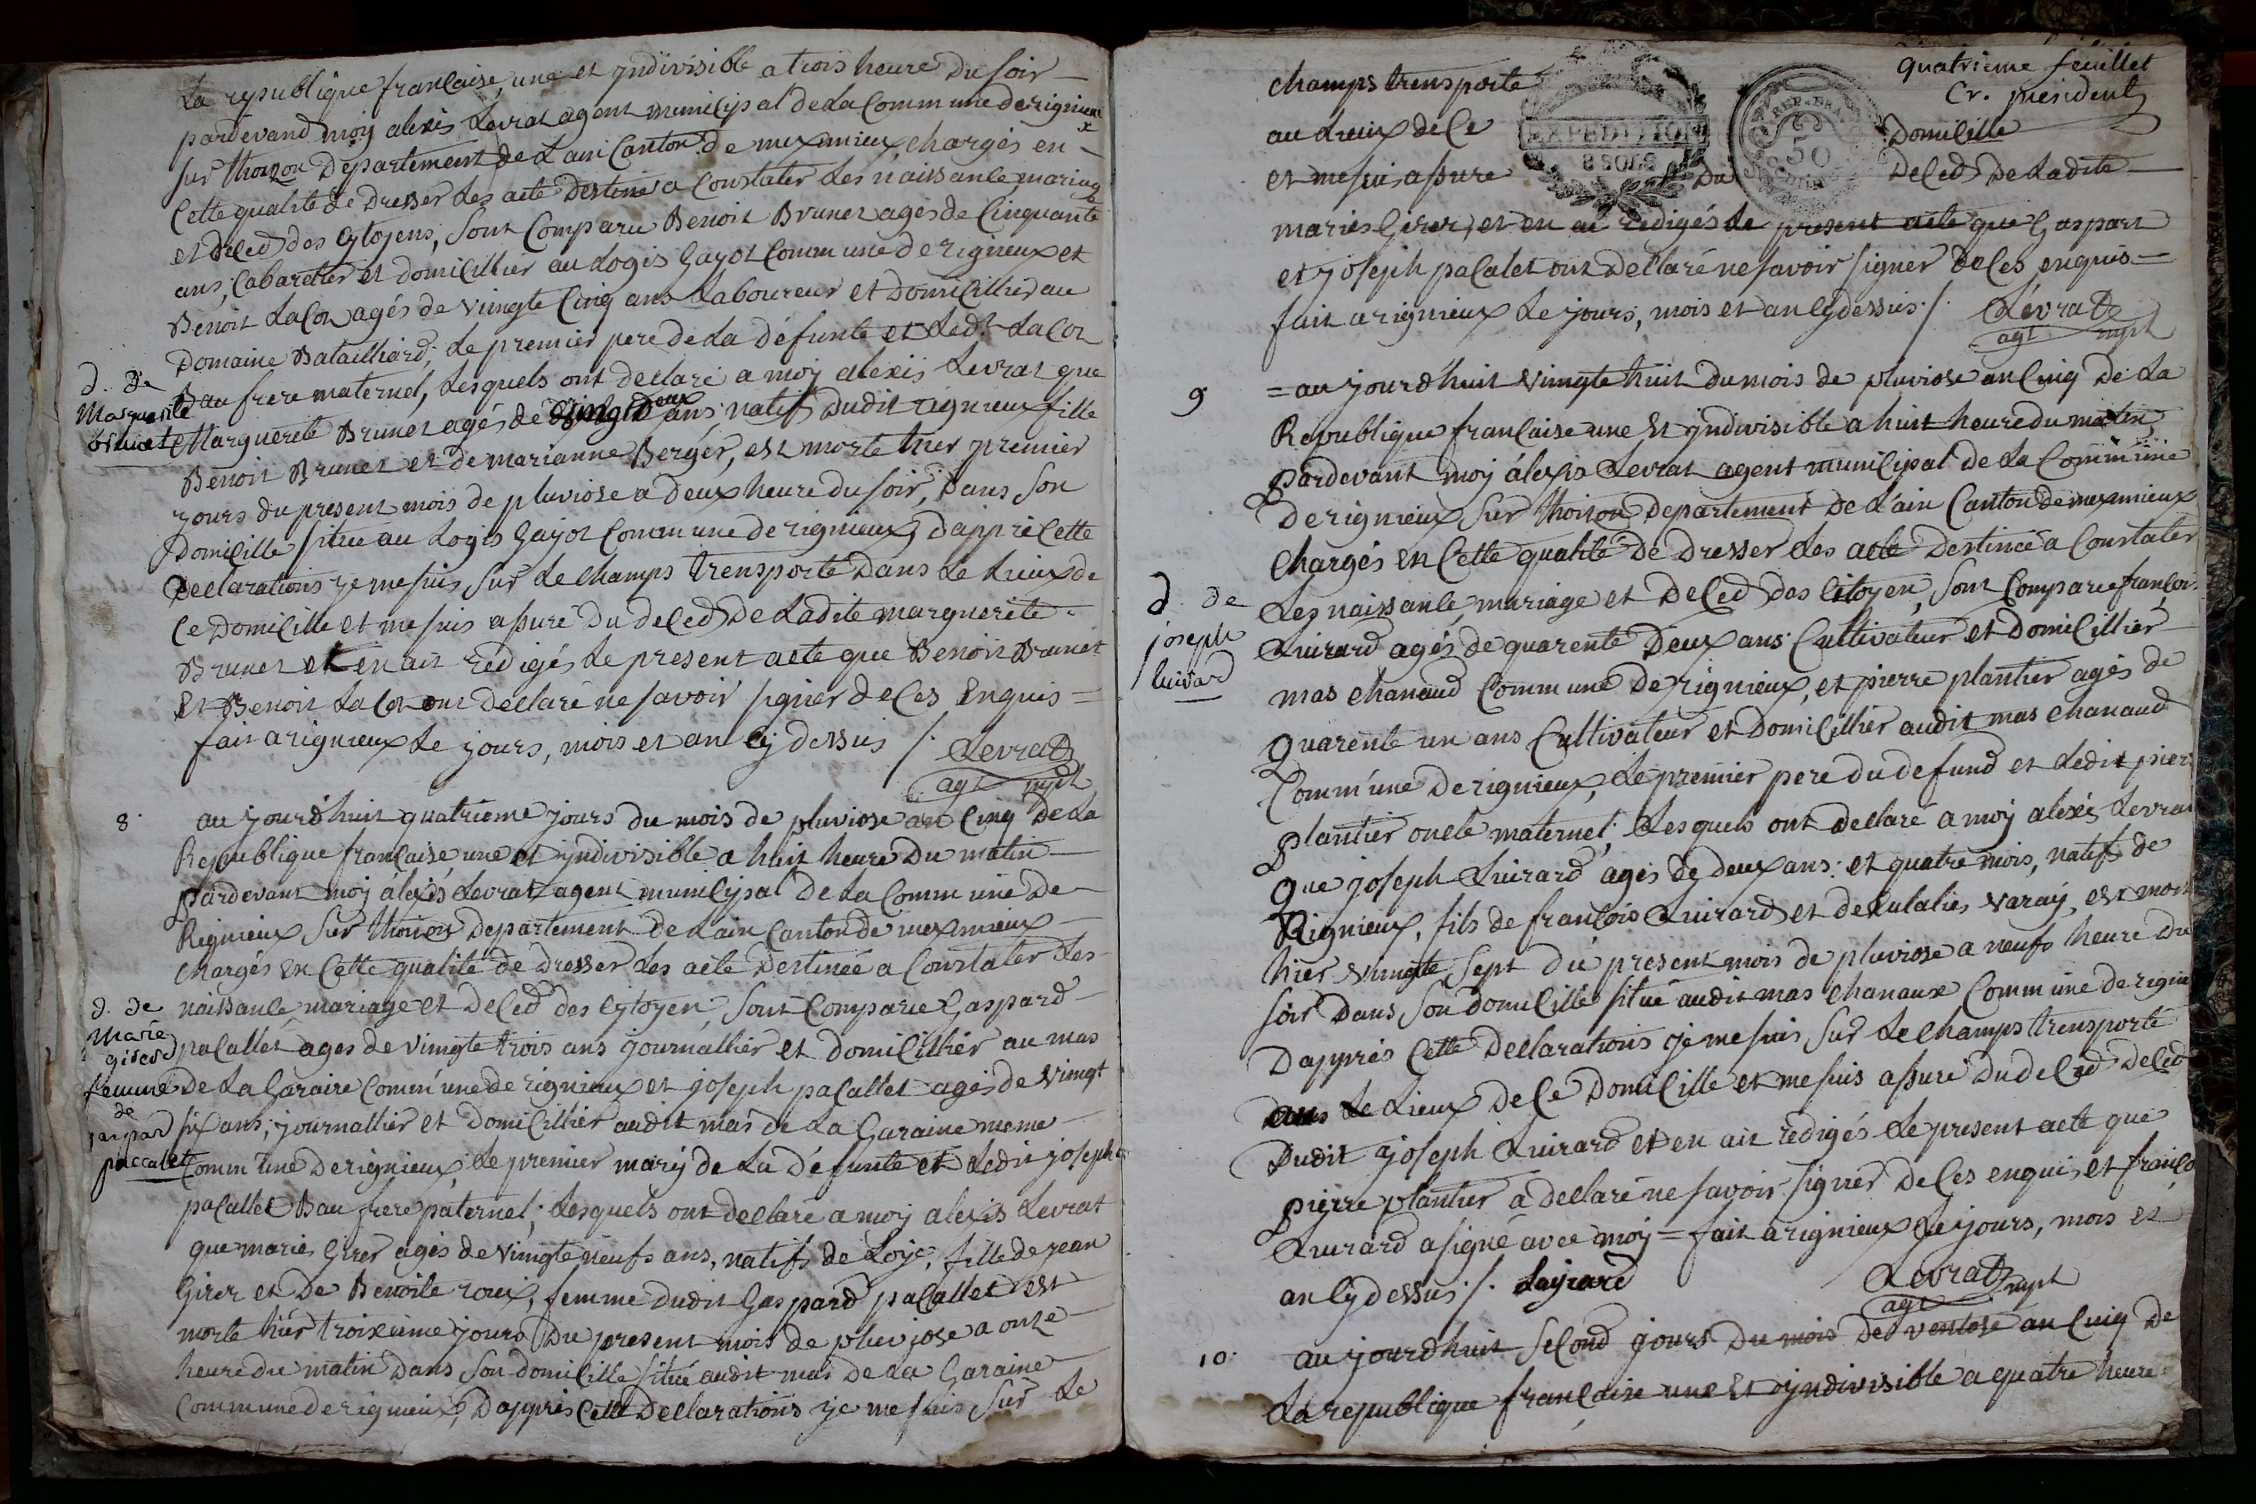 La republique française, une et yndivisible a trois heure du soir
pardevand moy alexis Levrat agent municipal de La Commune de rignieux
sur thoizon Departement de Lain Canton de meximieux, chargés en
Cette qualité de Dresser Les acte Destiné a Constater Les naissance mariage
et deced des Cytoyens, sont Comparu Benoit Brunet ages de Cinquante
ans, Cabaretier et domicillier au Logis Gayot Commune de rignieux et
Benoit Lacot agés de vingte Cinq ans Laboureur et Domicillier au
Domaine Batailliard; Le premier pere de La défunte et Ledt Lacot
Bau frere maternel, Lesquels ont declaré a moy alexis Levrat que
d. de
Marguerite
brunet
Marguerite Brunet agés de deux ans; natif Dudit rignieux fille
Benoit Brunet et de marianne Berger, est morte hier premier
yours du present mois de pluviose a deux heure du soir, Dans Son
Domicille situé au Logis Gayot Commune de rignieux, dapprè Cette
Declarations ye me suis Sur Le Champs trensporte Dans Le Lieux de
Ce Domicille et me suis assuré Du deced De Ladite marguerite =
Brunet et en ait redigés Le present acte que Benoit Brunet
Et Benoit Lacot ont declaré ne savoir signer de Ces Enquis =
fait a rignieux Le yours, mois et an Cy dessus /. Levrat
agt mpl
8. au yourdhuit quatrieme yours du mois de pluviose an Cinq De La
Republique française une et yndivisible a huit heure Du matin
pardevant moy álexis Levrat agent municipal de La Commune De
Rignieux Sur thoizon Departement De Lain Canton de meximieux
chargés En Cette qualité de Dresser Les acte Destinée a Constater Les
naissance, mariage et deced des Cytoyen; sont Comparu Gaspard
d. de
Marie
girerd
femme
de
gaspard
paccalet
pacallet ages de vingte trois ans journallier et domicillier au mas
de La Garaine Commune de rignieux et joseph pacallet agés de vingt
six ans; journallier et Domicillier audit mas de La Garaine meme
Commune De rignieux; Le premier mary de La défunte et Ledit joseph
pacallet Bau frere paternel; Lesquels ont declaré a moy alexis Levrat
que marie Girer agés de vingte neufs ans, natifs de Loye, fille de jean
Girer et De Benoite roux, femme dudit Gaspard pacallet est
morte hiér troixieme yours Du present mois de pluviose a onze
heure du matin Dans son domicille situé audit mas de La Garaine
Commune de rignieux, Dapprès Cette Declarations ye me suis Sur Le
quatrieme feuillet
Cr. president
champs trensporte
au Lieux de Ce Domicille
et me suis assure Du Deced De Ladite
EXPEDITION
8 SOLS
REP.
50
marie Girer, et en ai redigés Le present acte que Gaspart
et joseph pacalet ont Declaré ne savoir signer de Ces enquis =
fait a rignieux Le yours, mois et an Cy dessus /. Levrat
agt mpl
9 = au yourdhuit vingte huit du mois de pluviose an Cinq De La
Republique française une Et yndivisible a huit heure du matin,
Pardevant moy álexis Levrat agent municipal de La Commune
De rignieux Sur thoizon Departement De L'ain Canton de meximieux
Chargés En Cette qualité De Dresser Les acte Destinée a Constater
d. de
joseph
Luirard
Les naissance, mariage et Deced des Citoyen, sont Comparu françois
Luirard agés de quarente Deux ans Cultivateur et Domicillier
mas Chanaud Commune De rignieux, et pierre plantier agés de
Quarente un ans Cultivateur et Domicillier audit mas Chanaud
Commune De rignieux, Le premier pere du defund et Ledit pierre
Plantier oncle maternel; Lesquels ont Declaré a moy aléxis Levrat
Que joseph Luirard agés de deux ans et quatre mois, natifs de
Rignieux, fils de françois Luirard et de Eulalie varay, est mort
hier vingte sept du present mois de pluviose a neufs heure Du
soir Dans Son domicille situé audit mas Chanaux Commune de rignieux
Dapprès Cette Declarations je me suis Sur Le Champs trensporté
dans Le Lieux De Ce Domicille et me suis assuré Du deced
Dudit joseph Luirard et en ait redigés Le present acte que
Pierre plantier a declaré ne savoir signer De Ces enquis et françois
Luirard a signé avec moy = fait a rignieux Le yours, mois et
an Cy dessus /. Luyrard Levrat
agt mpl
10. au yourdhuit second yours Du mois De ventose an Cinq De
La republique française une Et yndivisible a quatre heure